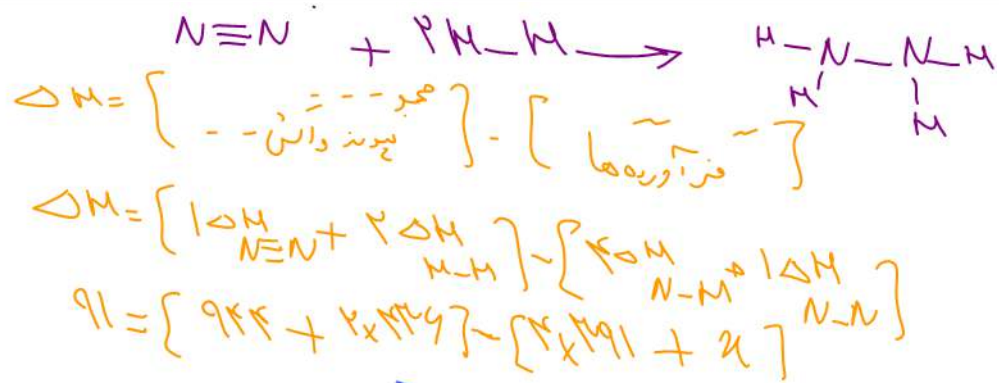 N≡N + ۲H–H → H–N–N–H
H H
ΔH = [ مجمو --- پیوند واکنش -- ] - [ ~ ~ فرآورده‌ها ]
ΔH = [ ۱ΔH N≡N + ۲ΔH H–H ] - [ ۴ΔH N–H + ۱ΔH N–N ]
۹۱ = [ ۹۴۴ + ۲×۴۳۶ ] - [ ۴×۳۹۱ + x ]